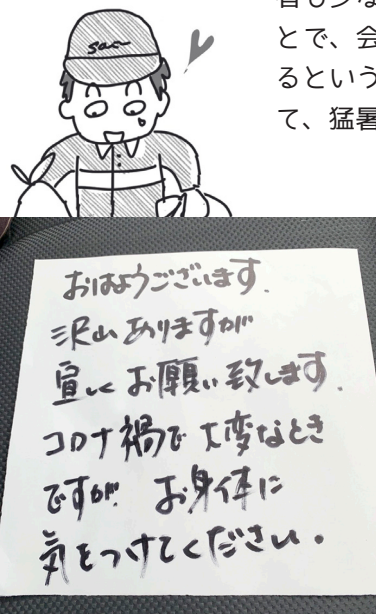 とで、会
るという
て、猛暑
おはようございます.
沢山ありますが
宜しくお願い致します.
コロナ禍で大変なとき
ですが、お身体に
気をつけてください.